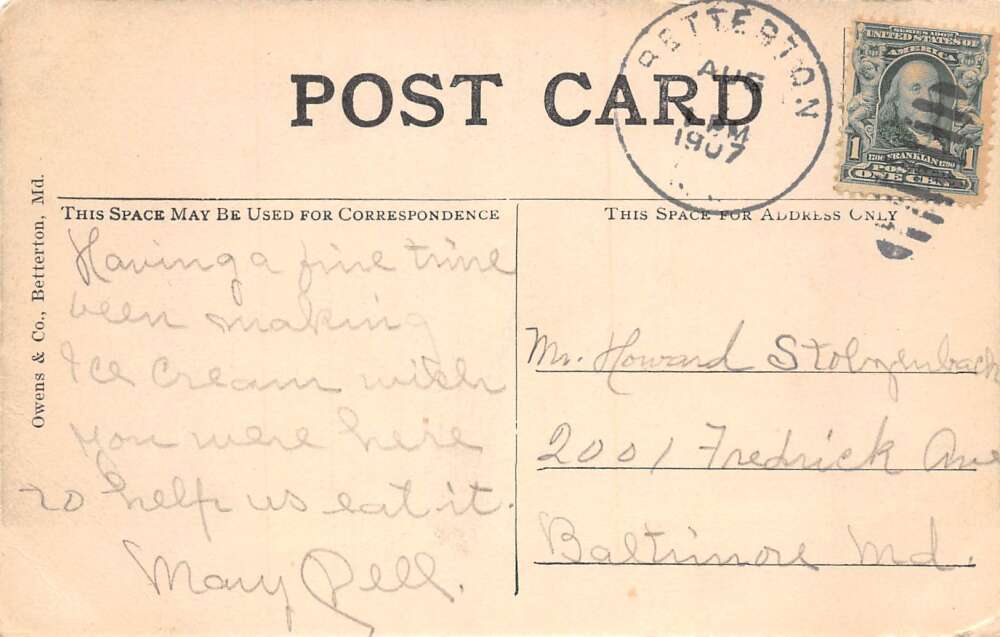 POST CARD
BETTERTON
AUG
PM
1907
SERIES 1902
UNITED STATES OF
AMERICA
1 1706 FRANKLIN 1790 1
POSTAGE
ONE CENT
THIS SPACE MAY BE USED FOR CORRESPONDENCE
THIS SPACE FOR ADDRESS ONLY
Owens & Co., Betterton, Md.
Having a fine time
been making
Ice cream wish
you were here
to help us eat it.
Mary Pell.
Mr. Howard Stolzenbach
2001 Fredrick Ave
Baltimore Md.